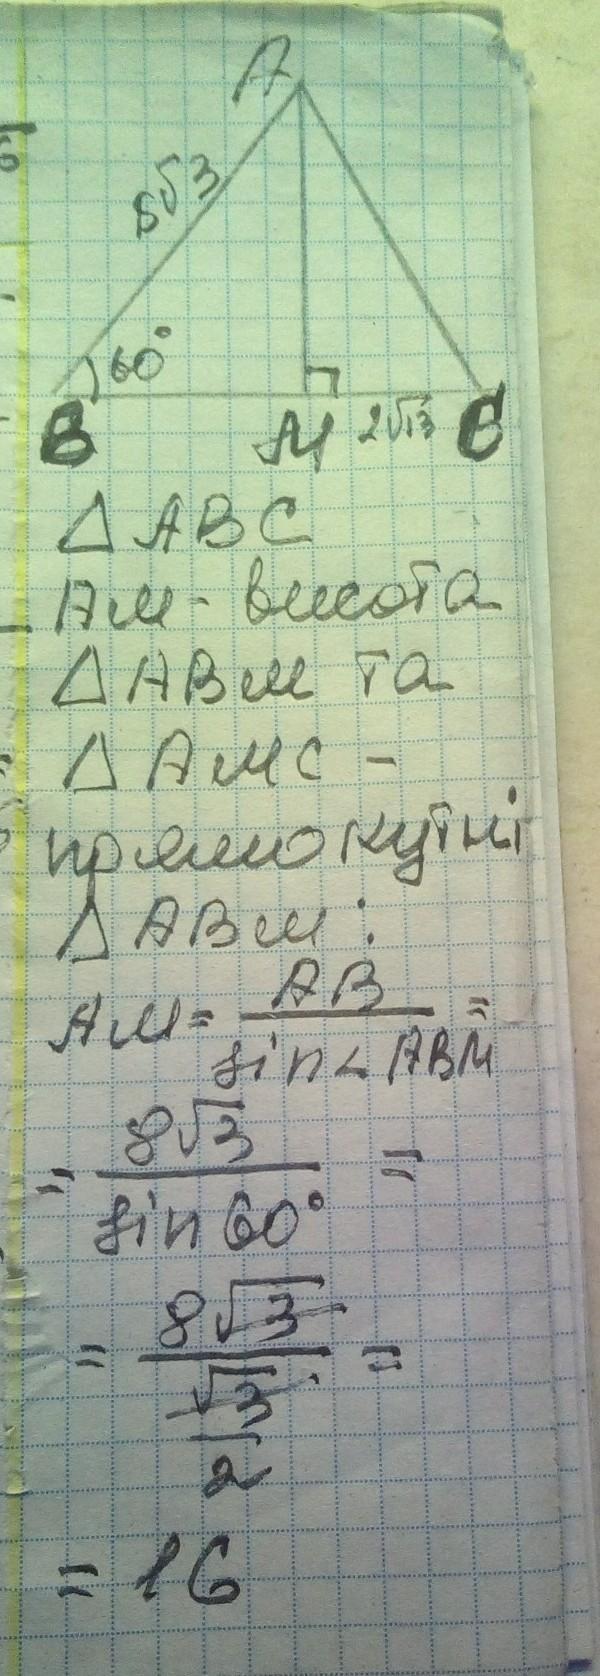 A
8√3
60°
B M 2√13 C
△ABC
AM - висота
△ABM та
△AMC -
прямокутні
△ABM:
AM = AB / sin∠ABM =
= 8√3 / sin60° =
= 8√3 / √3/2 =
= 16